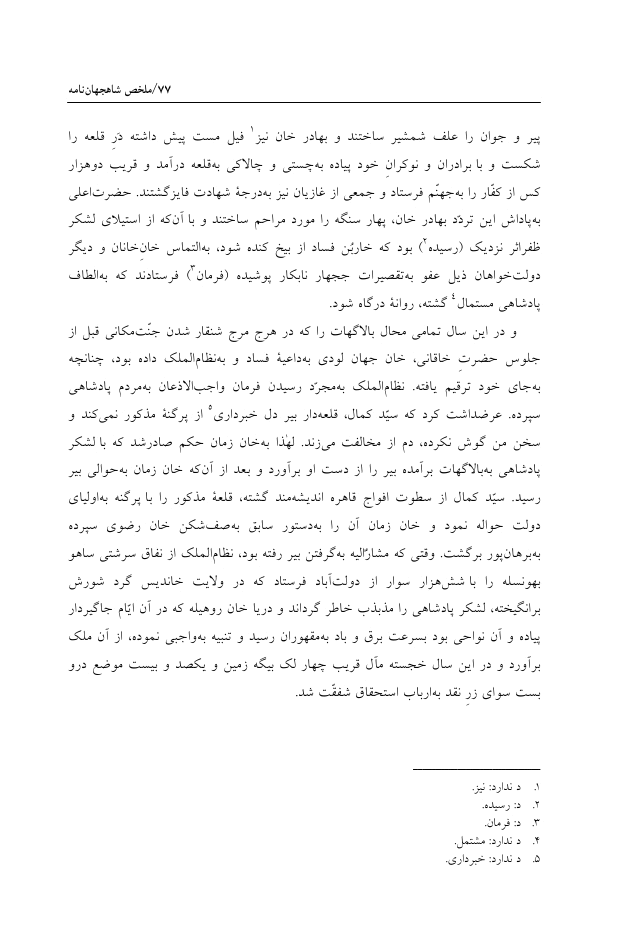 ۷۷/ملخص شاهجهان‌نامه
پیر و جوان را علف شمشیر ساختند و بهادر خان نیز۱ فیل مست پیش داشته دَرِ قلعه را
شکست و با برادران و نوکرانِ خود پیاده به‌چستی و چالاکی به‌قلعه درآمد و قریب دوهزار
کس از کفّار را به‌جهنّم فرستاد و جمعی از غازیان نیز به‌درجهٔ شهادت فایزگشتند. حضرت‌اعلی
به‌پاداش این تردّد بهادر خان، پهار سنگه را مورد مراحم ساختند و با آن‌که از استیلای لشکر
ظفراثر نزدیک (رسیده۲) بود که خاربُن فساد از بیخ کنده شود، به‌التماس خانِ‌خانان و دیگر
دولت‌خواهان ذیل عفو به‌تقصیرات ججهار نابکار پوشیده (فرمان۳) فرستادند که به‌الطاف
پادشاهی مستمال۴ گشته، روانهٔ درگاه شود.
و در این سال تمامی محال بالاگهات را که در هرج مرج شنقار شدن جنّت‌مکانی قبل از
جلوس حضرتِ خاقانی، خان جهان لودی به‌داعیهٔ فساد و به‌نظام‌الملک داده بود، چنانچه
به‌جای خود ترقیم یافته. نظام‌الملک به‌مجرّد رسیدن فرمان واجب‌الاذعان به‌مردم پادشاهی
سپرده. عرضداشت کرد که سیّد کمال، قلعه‌دار بیر دل خبرداری۵ از پرگنهٔ مذکور نمی‌کند و
سخن من گوش نکرده، دم از مخالفت می‌زند. لهٰذا به‌خان زمان حکم صادرشد که با لشکر
پادشاهی به‌بالاگهات برآمده بیر را از دست او برآورد و بعد از آن‌که خان زمان به‌حوالی بیر
رسید. سیّد کمال از سطوت افواج قاهره اندیشه‌مند گشته، قلعهٔ مذکور را با پرگنه به‌اولیای
دولت حواله نمود و خان زمان آن را به‌دستور سابق به‌صف‌شکن خان رضوی سپرده
به‌برهان‌پور برگشت. وقتی که مشارٌالیه به‌گرفتن بیر رفته بود، نظام‌الملک از نفاق سرشتی ساهو
بهونسله را با شش‌هزار سوار از دولت‌آباد فرستاد که در ولایت خاندیس گرد شورش
برانگیخته، لشکر پادشاهی را مذبذب خاطر گرداند و دریا خان روهیله که در آن ایّام جاگیردار
پیاده و آن نواحی بود بسرعت برق و باد به‌مقهوران رسید و تنبیه به‌واجبی نموده، از آن ملک
برآورد و در این سال خجسته مآل قریب چهار لک بیگه زمین و یکصد و بیست موضع درو
بست سوای زرِ نقد به‌ارباب استحقاق شفقّت شد.
۱. د ندارد: نیز.
۲. د: رسیده.
۳. د: فرمان.
۴. د ندارد: مشتمل.
۵. د ندارد: خبرداری.